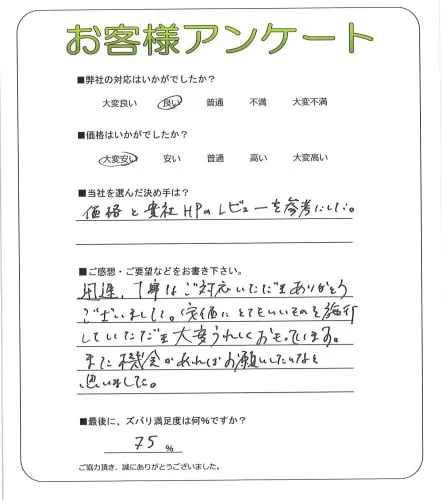 お客様アンケート
■弊社の対応はいかがでしたか？
大変良い 良い 普通 不満 大変不満
■価格はいかがでしたか？
大変安い 安い 普通 高い 大変高い
■当社を選んだ決め手は？
価格と貴社HPのレビューを参考にした。
■ご感想・ご要望などをお書き下さい。
丁寧なご対応いただきありがとう
ございました。安価にとてもいいものを施行
していただき大変うれしくおもっています。
また機会があればお願いしたいなと
思いました。
■最後に、ズバリ満足度は何%ですか？
75 %
ご協力頂き、誠にありがとうございました。